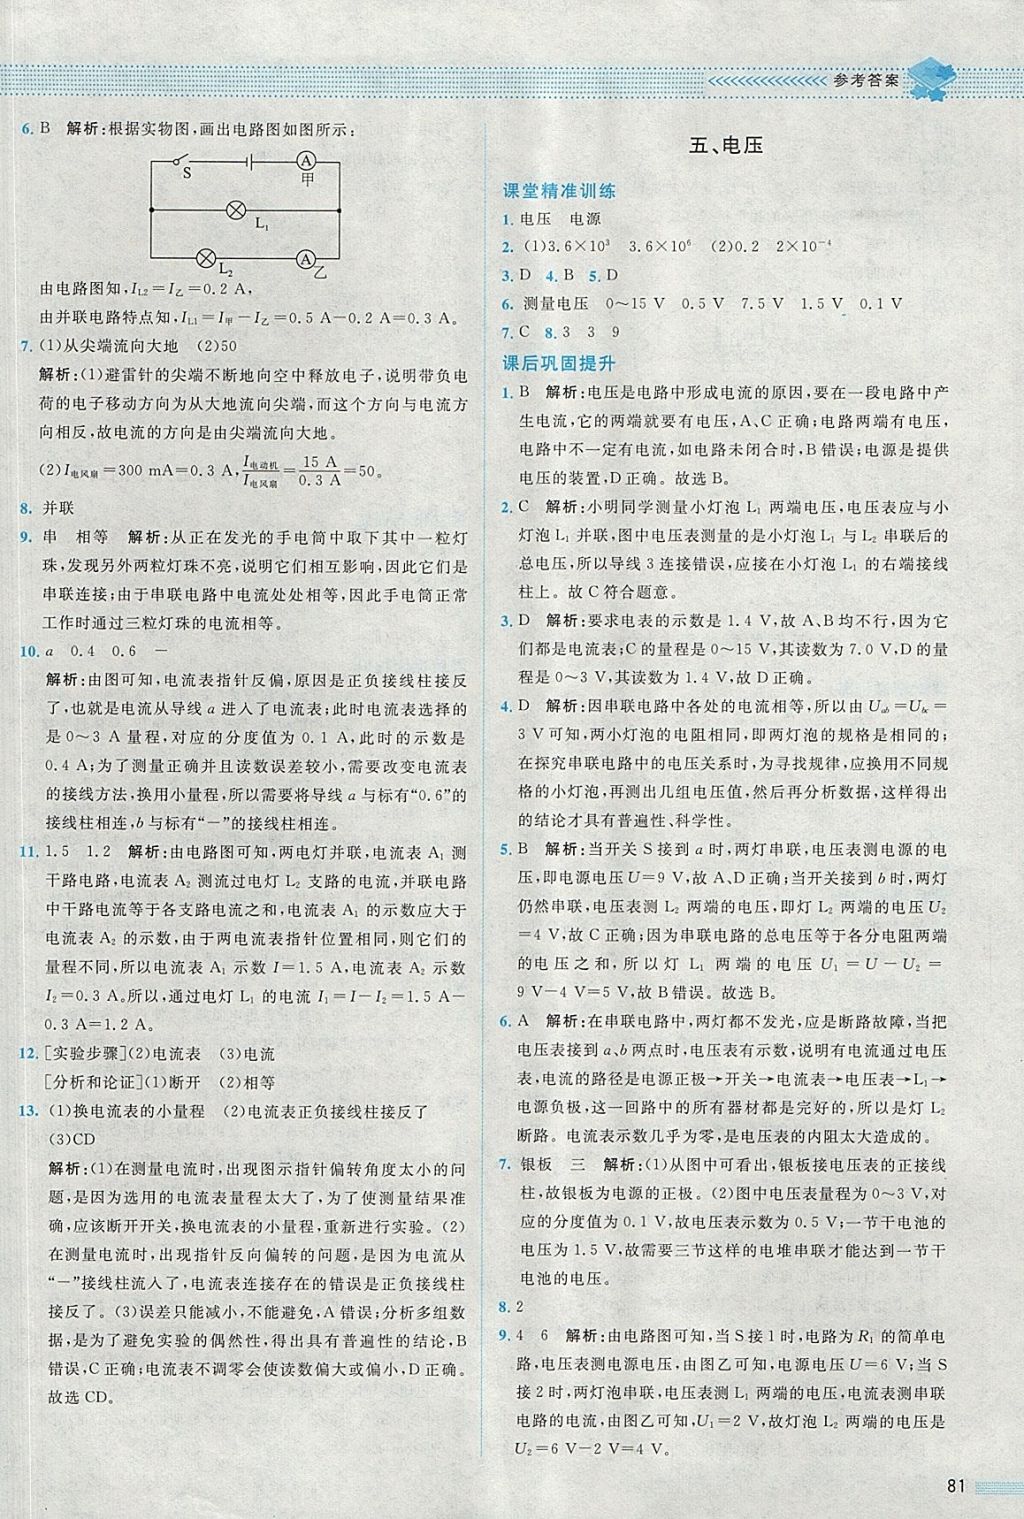 参考答案
6. B 解析:根据实物图,画出电路图如图所示:
S
A
甲
L₁
L₂
A
乙
由电路图知,I_L2=I_乙=0.2 A,
由并联电路特点知,I_L1=I_甲-I_乙=0.5 A-0.2 A=0.3 A。
7. (1)从尖端流向大地 (2)50
解析:(1)避雷针的尖端不断地向空中释放电子,说明带负电
荷的电子移动方向为从大地流向尖端,而这个方向与电流方
向相反,故电流的方向是由尖端流向大地。
(2)I_电风扇=300 mA=0.3 A,I_电动机/I_电风扇=15 A/0.3 A=50。
8. 并联
9. 串 相等 解析:从正在发光的手电筒中取下其中一粒灯
珠,发现另外两粒灯珠不亮,说明它们相互影响,因此它们是
串联连接;由于串联电路中电流处处相等,因此手电筒正常
工作时通过三粒灯珠的电流相等。
10. a 0.4 0.6 -
解析:由图可知,电流表指针反偏,原因是正负接线柱接反
了,也就是电流从导线a进入了电流表;此时电流表选择的
是0~3 A量程,对应的分度值为0.1 A,此时的示数是
0.4 A;为了测量正确并且读数误差较小,需要改变电流表
的接线方法,换用小量程,所以需要将导线a与标有“0.6”的
接线柱相连,b与标有“-”的接线柱相连。
11. 1.5 1.2 解析:由电路图可知,两电灯并联,电流表A₁测
干路电路,电流表A₂测流过电灯L₂支路的电流,并联电路
中干路电流等于各支路电流之和,电流表A₁的示数应大于
电流表A₂的示数,由于两电流表指针位置相同,则它们的
量程不同,所以电流表A₁示数I=1.5 A,电流表A₂示数
I₂=0.3 A。所以,通过电灯L₁的电流I₁=I-I₂=1.5 A-
0.3 A=1.2 A。
12. [实验步骤](2)电流表 (3)电流
[分析和论证](1)断开 (2)相等
13. (1)换电流表的小量程 (2)电流表正负接线柱接反了
(3)CD
解析:(1)在测量电流时,出现图示指针偏转角度太小的问
题,是因为选用的电流表量程太大了,为了使测量结果准
确,应该断开开关,换电流表的小量程,重新进行实验。(2)
在测量电流时,出现指针反向偏转的问题,是因为电流从
“-”接线柱流入了,电流表连接存在的错误是正负接线柱
接反了。(3)误差只能减小,不能避免,A错误;分析多组数
据,是为了避免实验的偶然性,得出具有普遍性的结论,B
错误,C正确;电流表不调零会使读数偏大或偏小,D正确。
故选CD。
五、电压
课堂精准训练
1. 电压 电源
2. (1)3.6×10³ 3.6×10⁶ (2)0.2 2×10⁻⁴
3. D 4. B 5. D
6. 测量电压 0~15 V 0.5 V 7.5 V 1.5 V 0.1 V
7. C 8. 3 3 9
课后巩固提升
1. B 解析:电压是电路中形成电流的原因,要在一段电路中产
生电流,它的两端就要有电压,A、C正确;电路两端有电压,
电路中不一定有电流,如电路未闭合时,B错误;电源是提供
电压的装置,D正确。故选B。
2. C 解析:小明同学测量小灯泡L₁两端电压,电压表应与小
灯泡L₁并联,图中电压表测量的是小灯泡L₁与L₂串联后的
总电压,所以导线3连接错误,应接在小灯泡L₁的右端接线
柱上。故C符合题意。
3. D 解析:要求电表的示数是1.4 V,故A、B均不行,因为它
们都是电流表;C的量程是0~15 V,其读数为7.0 V,D的量
程是0~3 V,其读数为1.4 V,故D正确。
4. D 解析:因串联电路中各处的电流相等,所以由U_ab=U_bc=
3 V可知,两小灯泡的电阻相同,即两灯泡的规格是相同的;
在探究串联电路中的电压关系时,为寻找规律,应换用不同规
格的小灯泡,再测出几组电压值,然后再分析数据,这样得出
的结论才具有普遍性、科学性。
5. B 解析:当开关S接到a时,两灯串联,电压表测电源的电
压,即电源电压U=9 V,故A、D正确;当开关接到b时,两灯
仍然串联,电压表测L₂两端的电压,即灯L₂两端的电压U₂
=4 V,故C正确;因为串联电路的总电压等于各分电阻两端
的电压之和,所以灯L₁两端的电压U₁=U-U₂=
9 V-4 V=5 V,故B错误。故选B。
6. A 解析:在串联电路中,两灯都不发光,应是断路故障,当把
电压表接到a、b两点时,电压表有示数,说明有电流通过电压
表,电流的路径是电源正极→开关→电流表→电压表→L₁→
电源负极,这一回路中的所有器材都是完好的,所以是灯L₂
断路。电流表示数几乎为零,是电压表的内阻太大造成的。
7. 银板 三 解析:(1)从图中可看出,银板接电压表的正接线
柱,故银板为电源的正极。(2)图中电压表量程为0~3 V,对
应的分度值为0.1 V,故电压表示数为0.5 V;一节干电池的
电压为1.5 V,故需要三节这样的电堆串联才能达到一节干
电池的电压。
8. 2
9. 4 6 解析:由电路图可知,当S接1时,电路为R₁的简单电
路,电压表测电源电压,由图乙可知,电源电压U=6 V;当S
接2时,两灯泡串联,电压表测L₁两端的电压,电流表测串联
电路的电流,由图乙可知,U₁=2 V,故灯泡L₂两端的电压是
U₂=6 V-2 V=4 V。
81